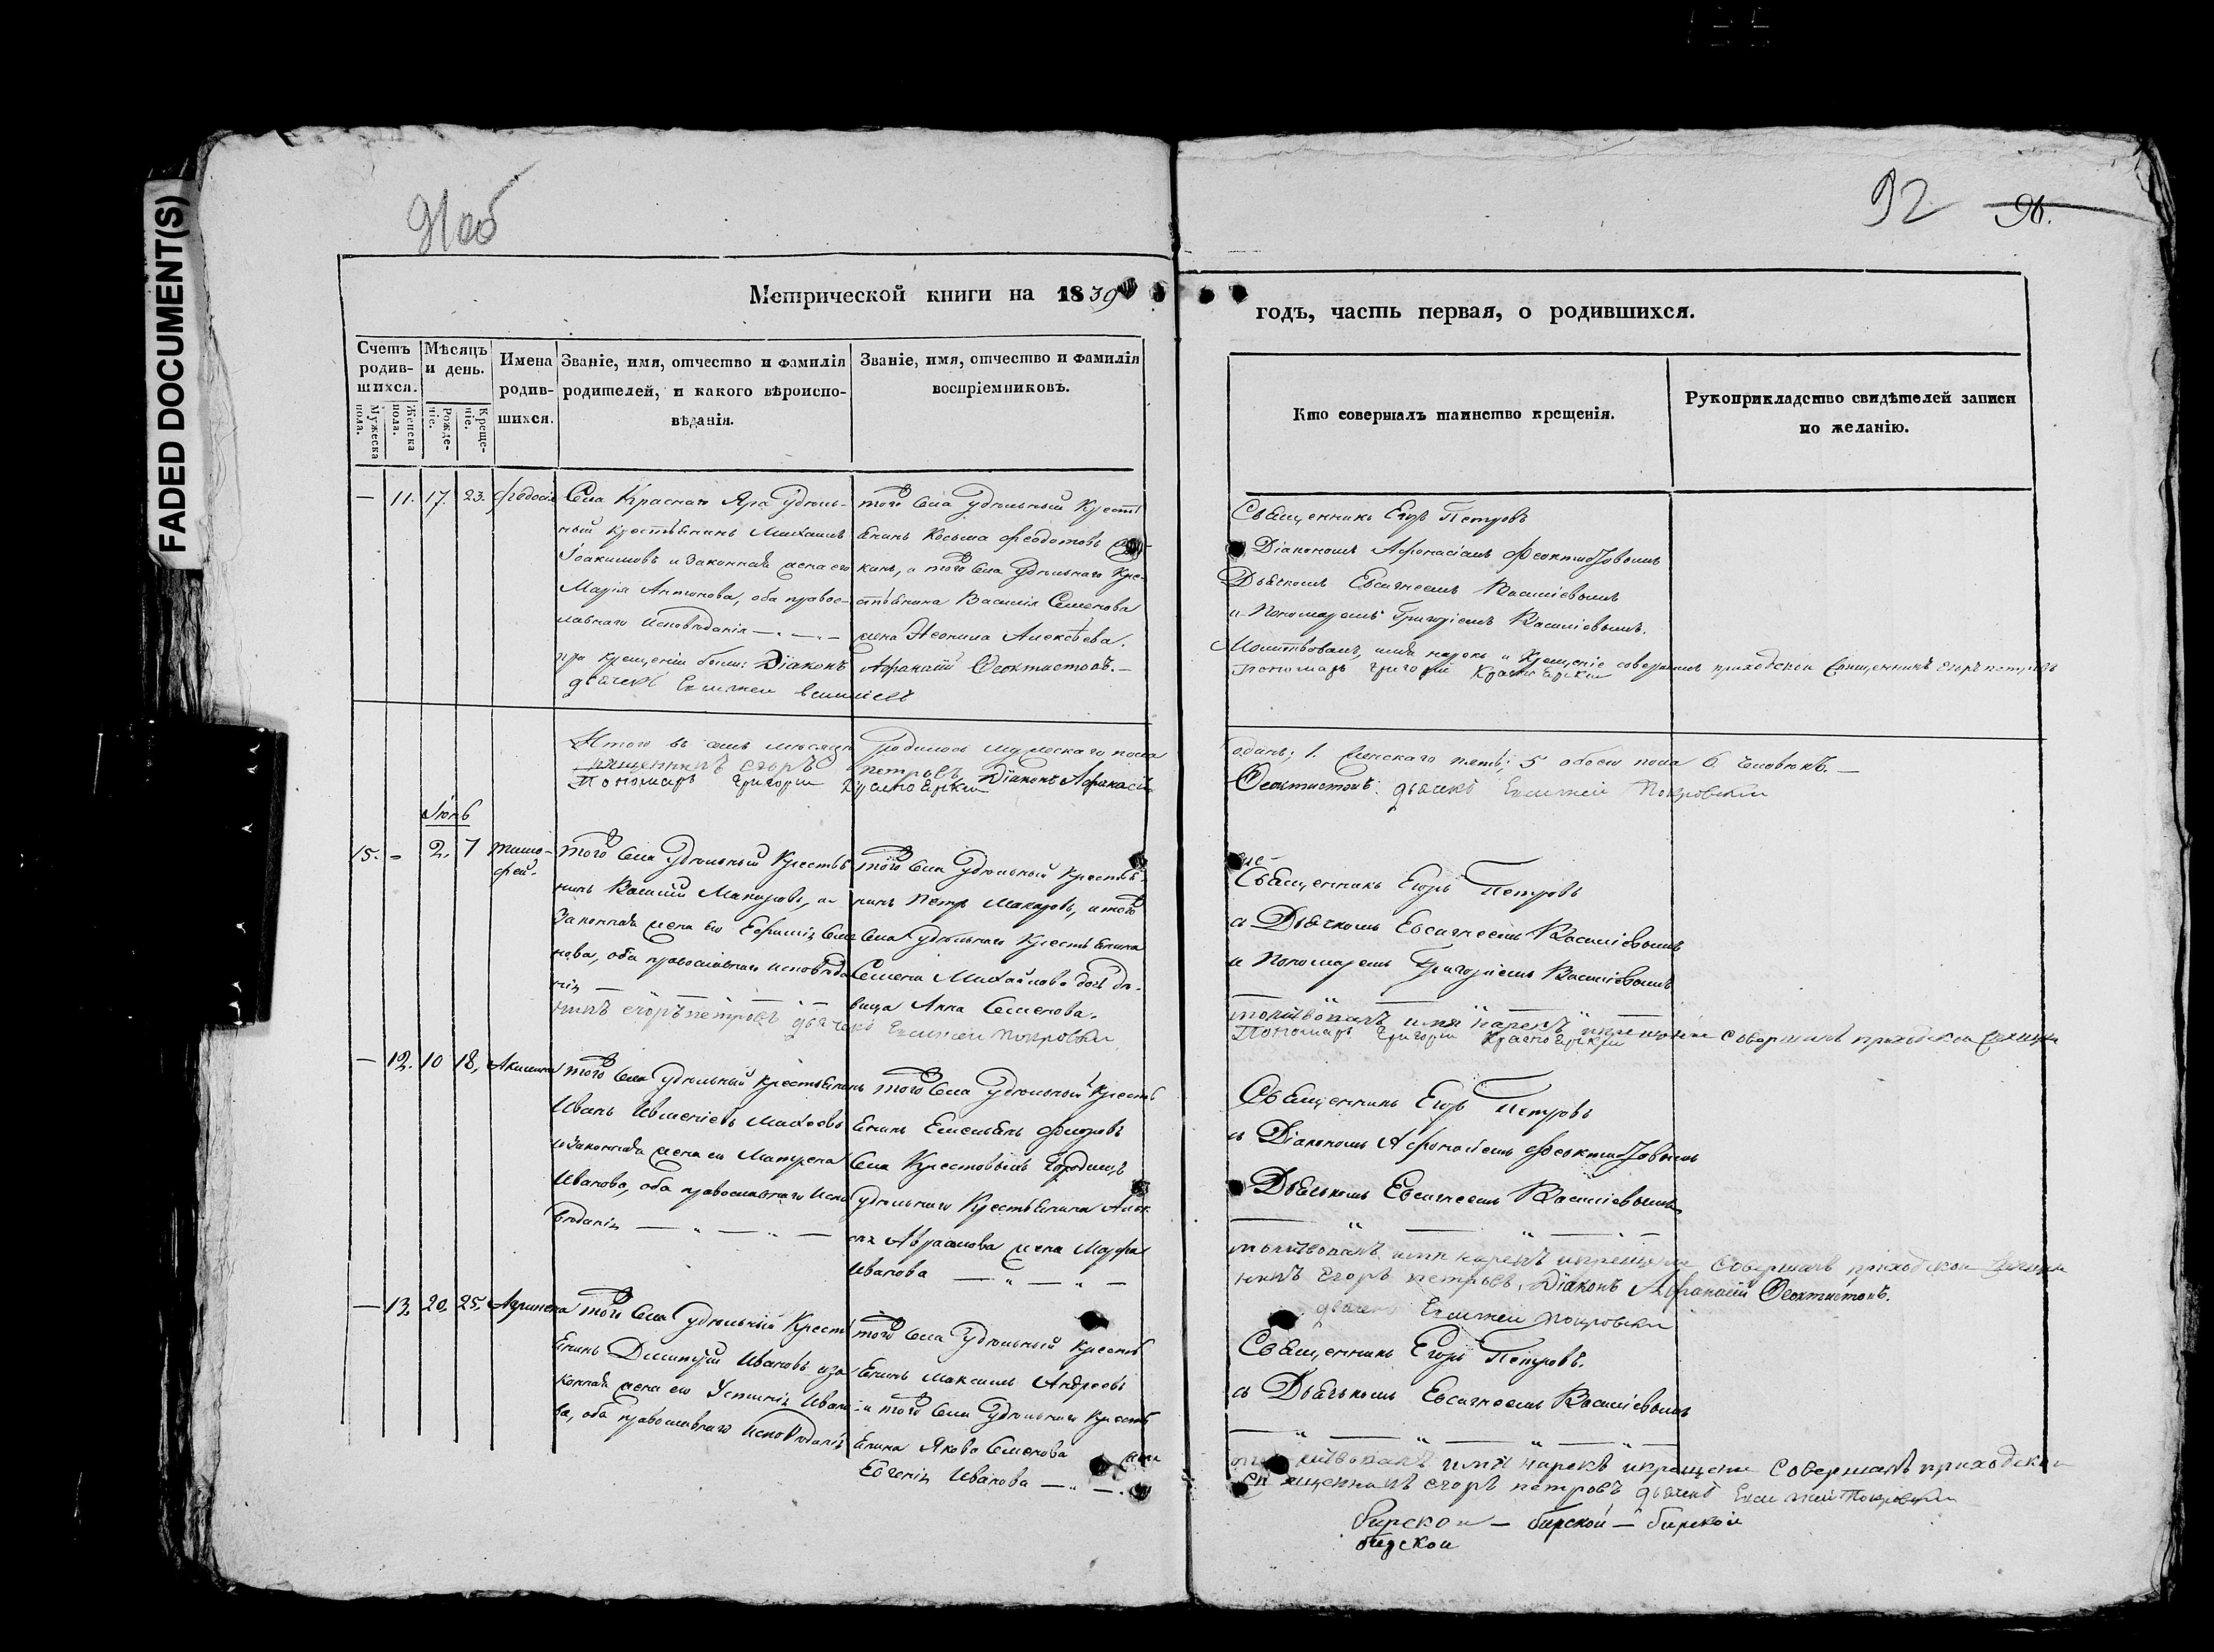 FADED DOCUMENT(S)
91об
92 96.
Метрической книги на 1839
годъ, часть первая, о родившихся.
Счетъ родив-шихся.
Мужеска пола.
Женска пола.
Мѣсяцъ и день.
Рожде-ніе.
Креще-ніе.
Имена родив-шихся.
Званіе, имя, отчество и фамилія
родителей, и какого вѣроиспо-
вѣданія.
Званіе, имя, отчество и фамилія
воспріемниковъ.
Кто совершалъ таинство крещенія.
Рукоприкладство свидѣтелей записи
по желанію.
— 11. 17. 23. Феодосія
Села Краснаго Яра Удѣль-
ный крестьянинъ Михаилъ
Іоакимовъ и Законная жена его
Марія Антонова, оба правос-
лавнаго исповѣданія — „ —
того Села Удѣльный Кресть
янинъ Косьма Феодотовъ
кинъ, и того Села Удѣльнаго Кре-
стьянина Василія Семенова
жена Неонила Алексѣева.
Священникъ Егоръ Петровъ
Діакономъ Афонасіемъ Феоктистовымъ
Дьячкомъ Евсигнеемъ Васильевымъ
и Пономаремъ Григоріемъ Васильевымъ.
при крещеніи были: Діаконъ Афанасій Феоктистовъ. —
дьячекъ Евсигней
Молитвовалъ, имя нарекъ и Крещеніе совершилъ приходской Священникъ Егоръ Петровъ
Пономарь Григорій Красноярскій
Итого въ семъ мѣсяцѣ Родилось мужескаго пола
одинъ; 1. Женскаго пять; 5 обоего пола 6. человѣкъ. —
Священникъ Егоръ Петровъ, Діаконъ Афанасій
Феоктистовъ. дьячекъ Евсигней Покровскій
Пономарь Григорій Красноярскій
Іюнь
15. - 2. 7 Тимо-
фей.
того Села Удѣльный Крестья
нинъ Василій Макаровъ, и
Законная жена его Ефимія Семе
нова, оба православнаго исповѣда
нія —
того Села Удѣльный Крестья-
нинъ Петръ Макаровъ, и того
Села Удѣльнаго Крестьянина
Семена Михайлова дочь дѣ-
вица Анна Семенова.
Священникъ Егоръ Петровъ
съ Дьячкомъ Евсигнеемъ Васильевымъ
и Пономаремъ Григоріемъ Васильевымъ
молитвовалъ имя нарекъ и крещеніе совершалъ приходской Священ
никъ Егоръ Петровъ дьячекъ Евсигней Покровскій
Пономарь Григорій Красноярскій
— 12. 10 18, Акилина
того Села Удѣльный Крестьянинъ
Иванъ
и Законная жена его Матрена
Иванова, оба православнаго испо
вѣданія — „ — „ —
того Села Удѣльный Кресть
янинъ Емельянъ Фроловъ
Села Крестовыхъ Городищъ
Удѣльнаго Крестьянина Алек
сѣя Авраамова жена Марфа
Иванова — „ — „ —
Священникъ Егоръ Петровъ
съ Діакономъ Афонасіемъ Феоктистовымъ
Дьячькомъ Евсигнеемъ Васильевымъ
молитвовалъ имя нарекъ и крещеніе совершалъ приходской Священ
никъ Егоръ Петровъ, Діаконъ Афанасій Феоктистовъ.
дьячекъ Евсигней Покровскій
— 13. 20. 25. Агрипена
того Села Удѣльный Кресть
янинъ Димитрій Ивановъ и за
конная жена его Устинія Ивано
ва, оба православнаго исповѣданія
того Села Удѣльный Кресть
янинъ Максимъ Андреевъ
и того Села Удѣльнаго Кресть
янина Якова Семенова жена
Евгенія Иванова — „ —
Священникъ Егоръ Петровъ.
съ Дьячькомъ Евсигнеемъ Васильевымъ
молитвовалъ имя нарекъ и крещеніе совершалъ приходской
Священникъ Егоръ Петровъ, дьячекъ Евсигней Покровскій
бирской — бирской — бирской
бирской